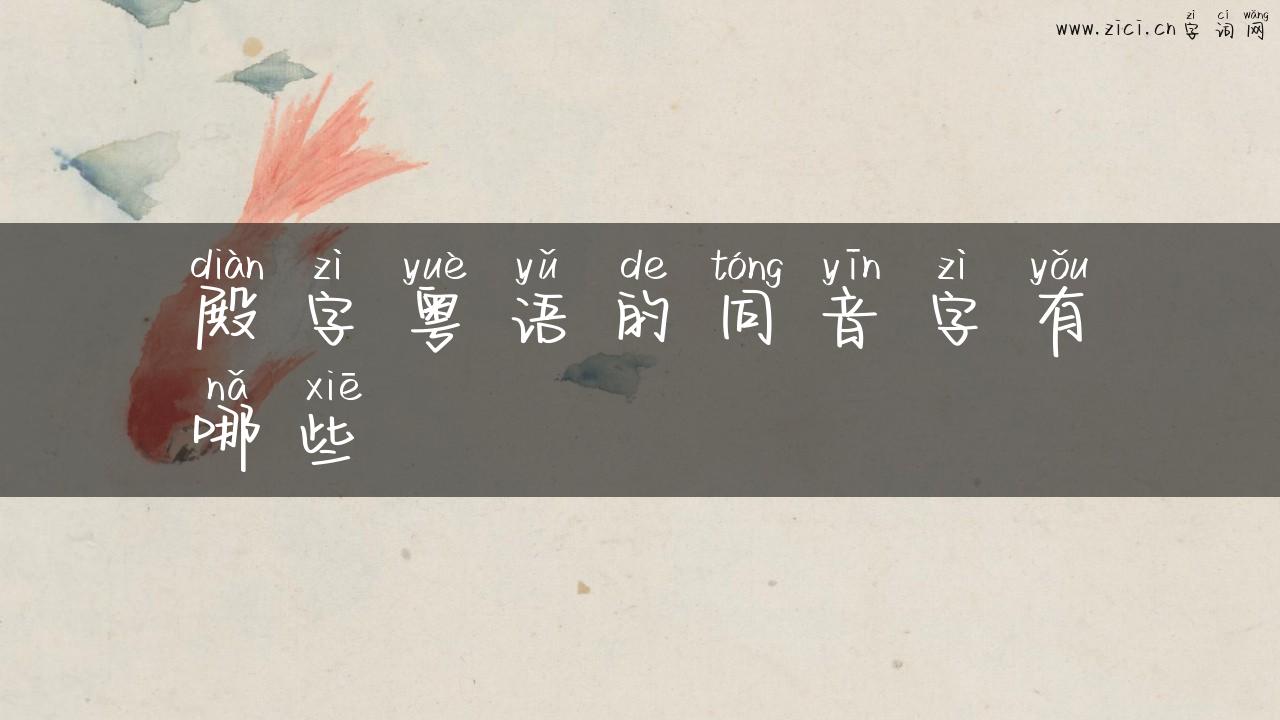 zì cí wǎng
www.zici.cn 字 词 网
diàn zì yuè yǔ de tóng yīn zì yǒu
殿 字 粤 语 的 同 音 字 有
nǎ xiē
哪 些